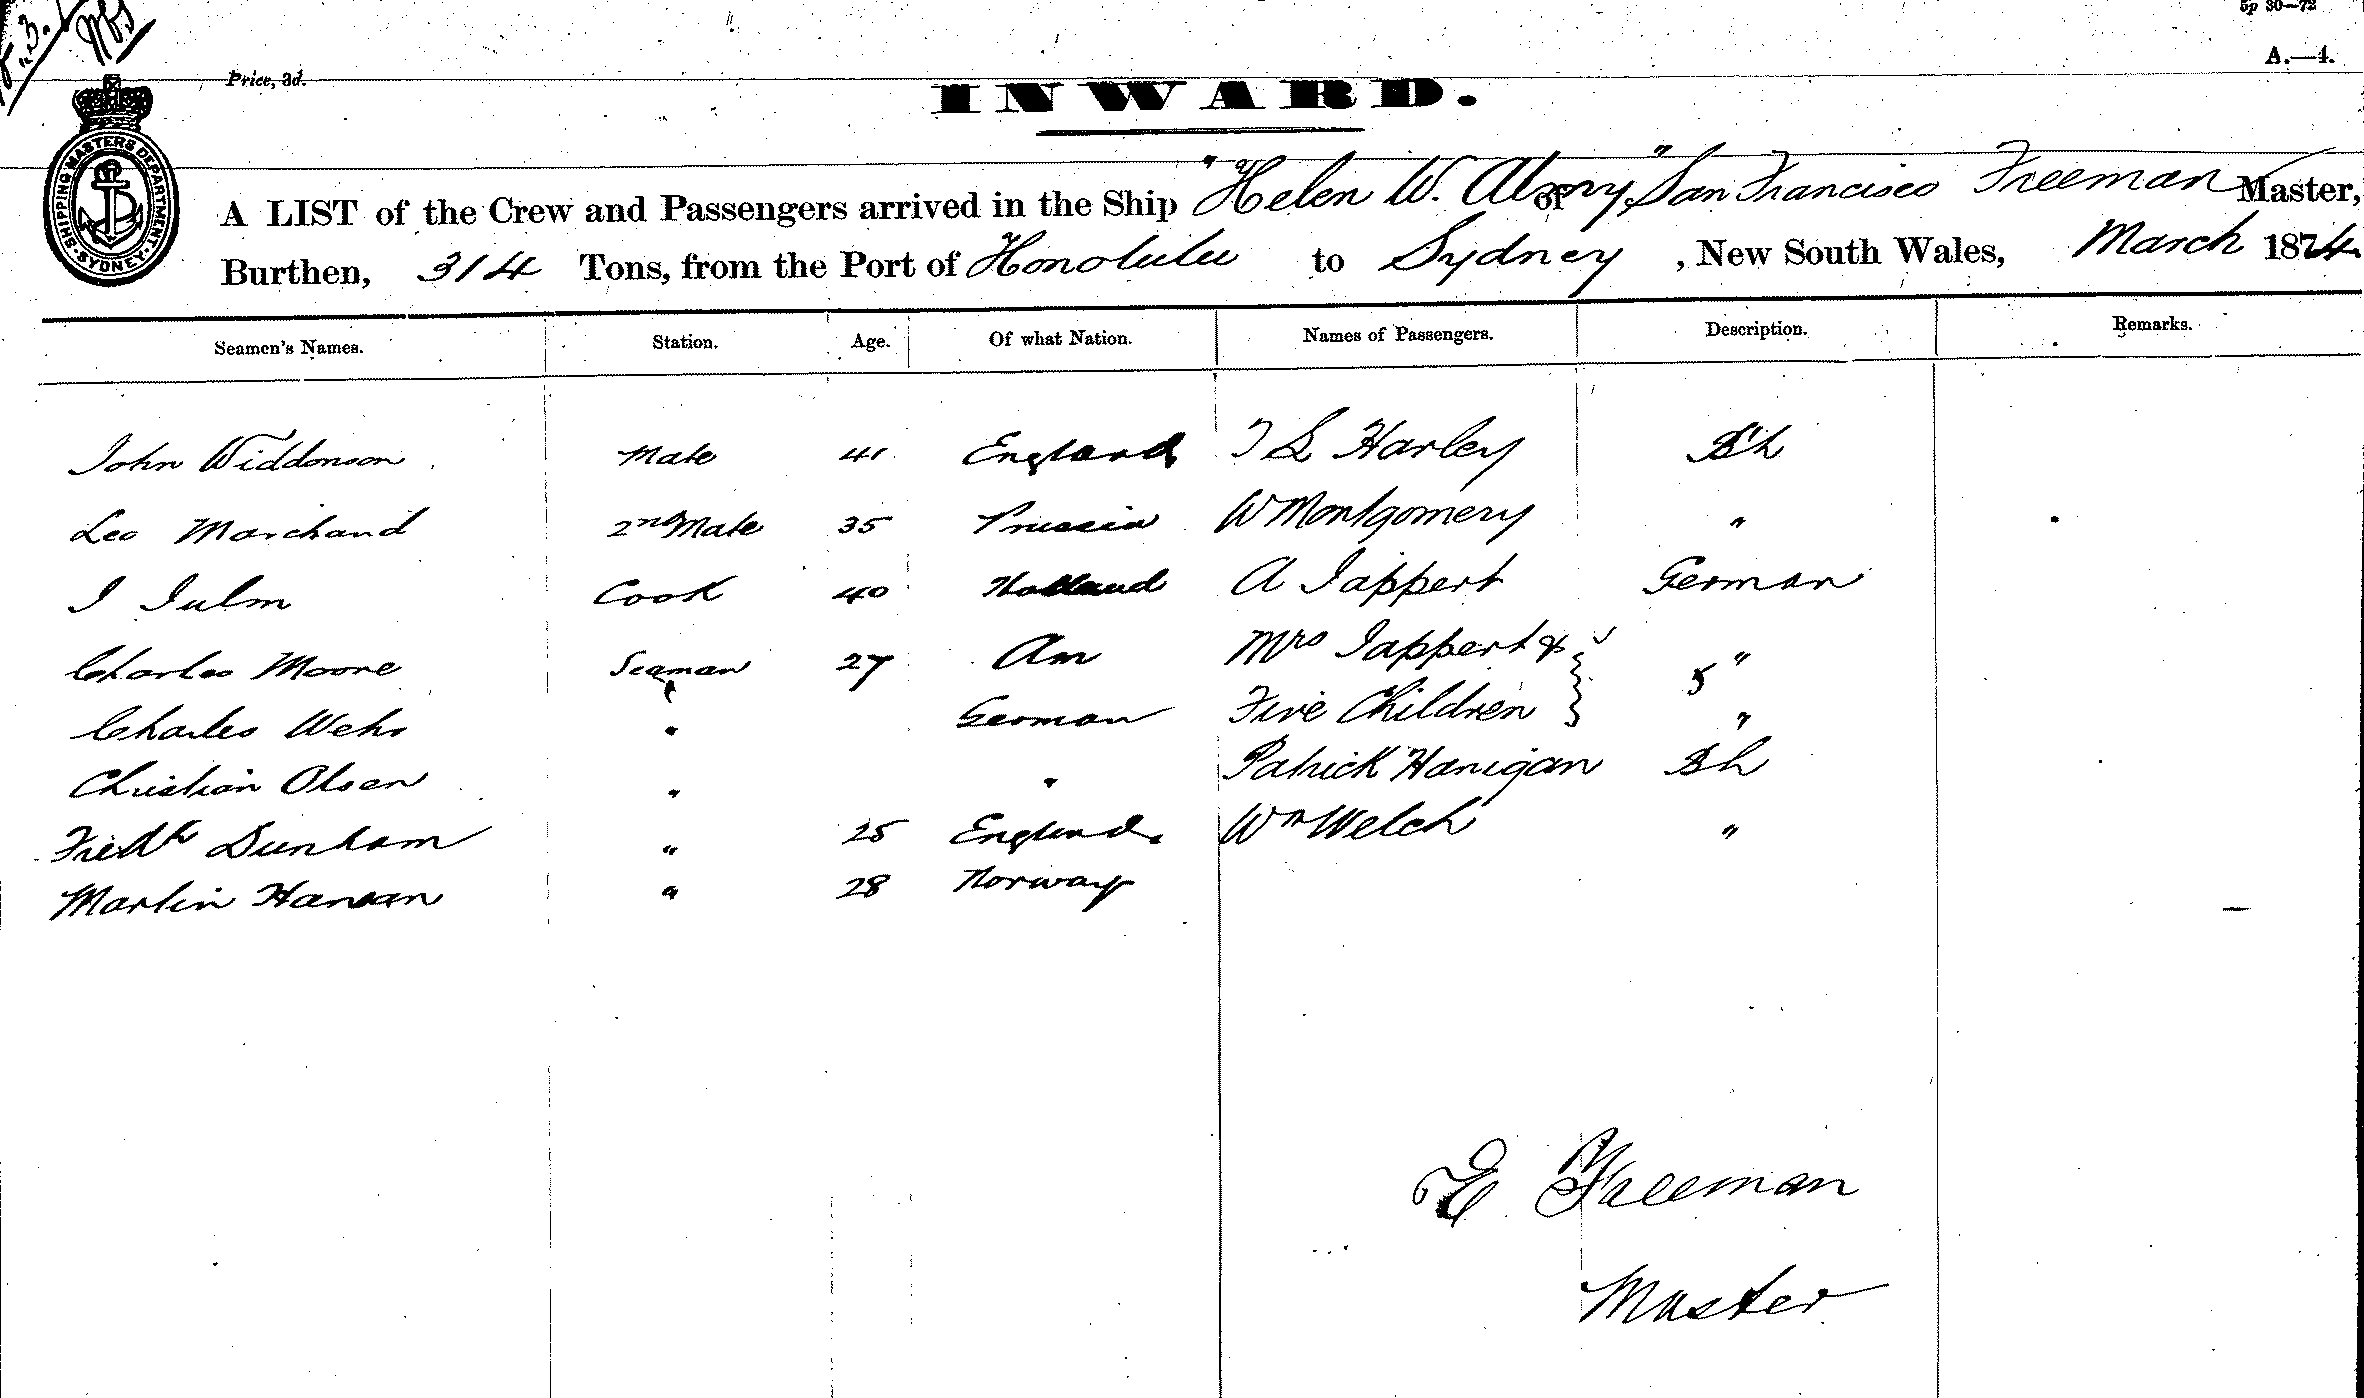 5p 30—72
A.—4.
Price, 3d.
INWARD.
SHIPPING MASTERS DEPARTMENT
SYDNEY
A LIST of the Crew and Passengers arrived in the Ship "Helen W. Almy" of San Francisco Freeman Master,
Burthen, 314 Tons, from the Port of Honolulu to Sydney, New South Wales, March 1874
Seamen's Names. Station. Age. Of what Nation. Names of Passengers. Description. Remarks.
John Widdonson Mate 41 England T L Harley Bh
Leo Marchand 2nd Mate 35 Prussia W Montgomery "
I Iulm Cook 40 Holland A Iappert German
Charles Moore Seaman 27 Am Mrs Iappert & "
5
Charles Wehr " German Five Children "
Christian Olsen " " Patrick Hanigan Bh
Fredk Dunham " 25 England Wm Welch "
Martin Hansan " 28 Norway
E Freeman
Master